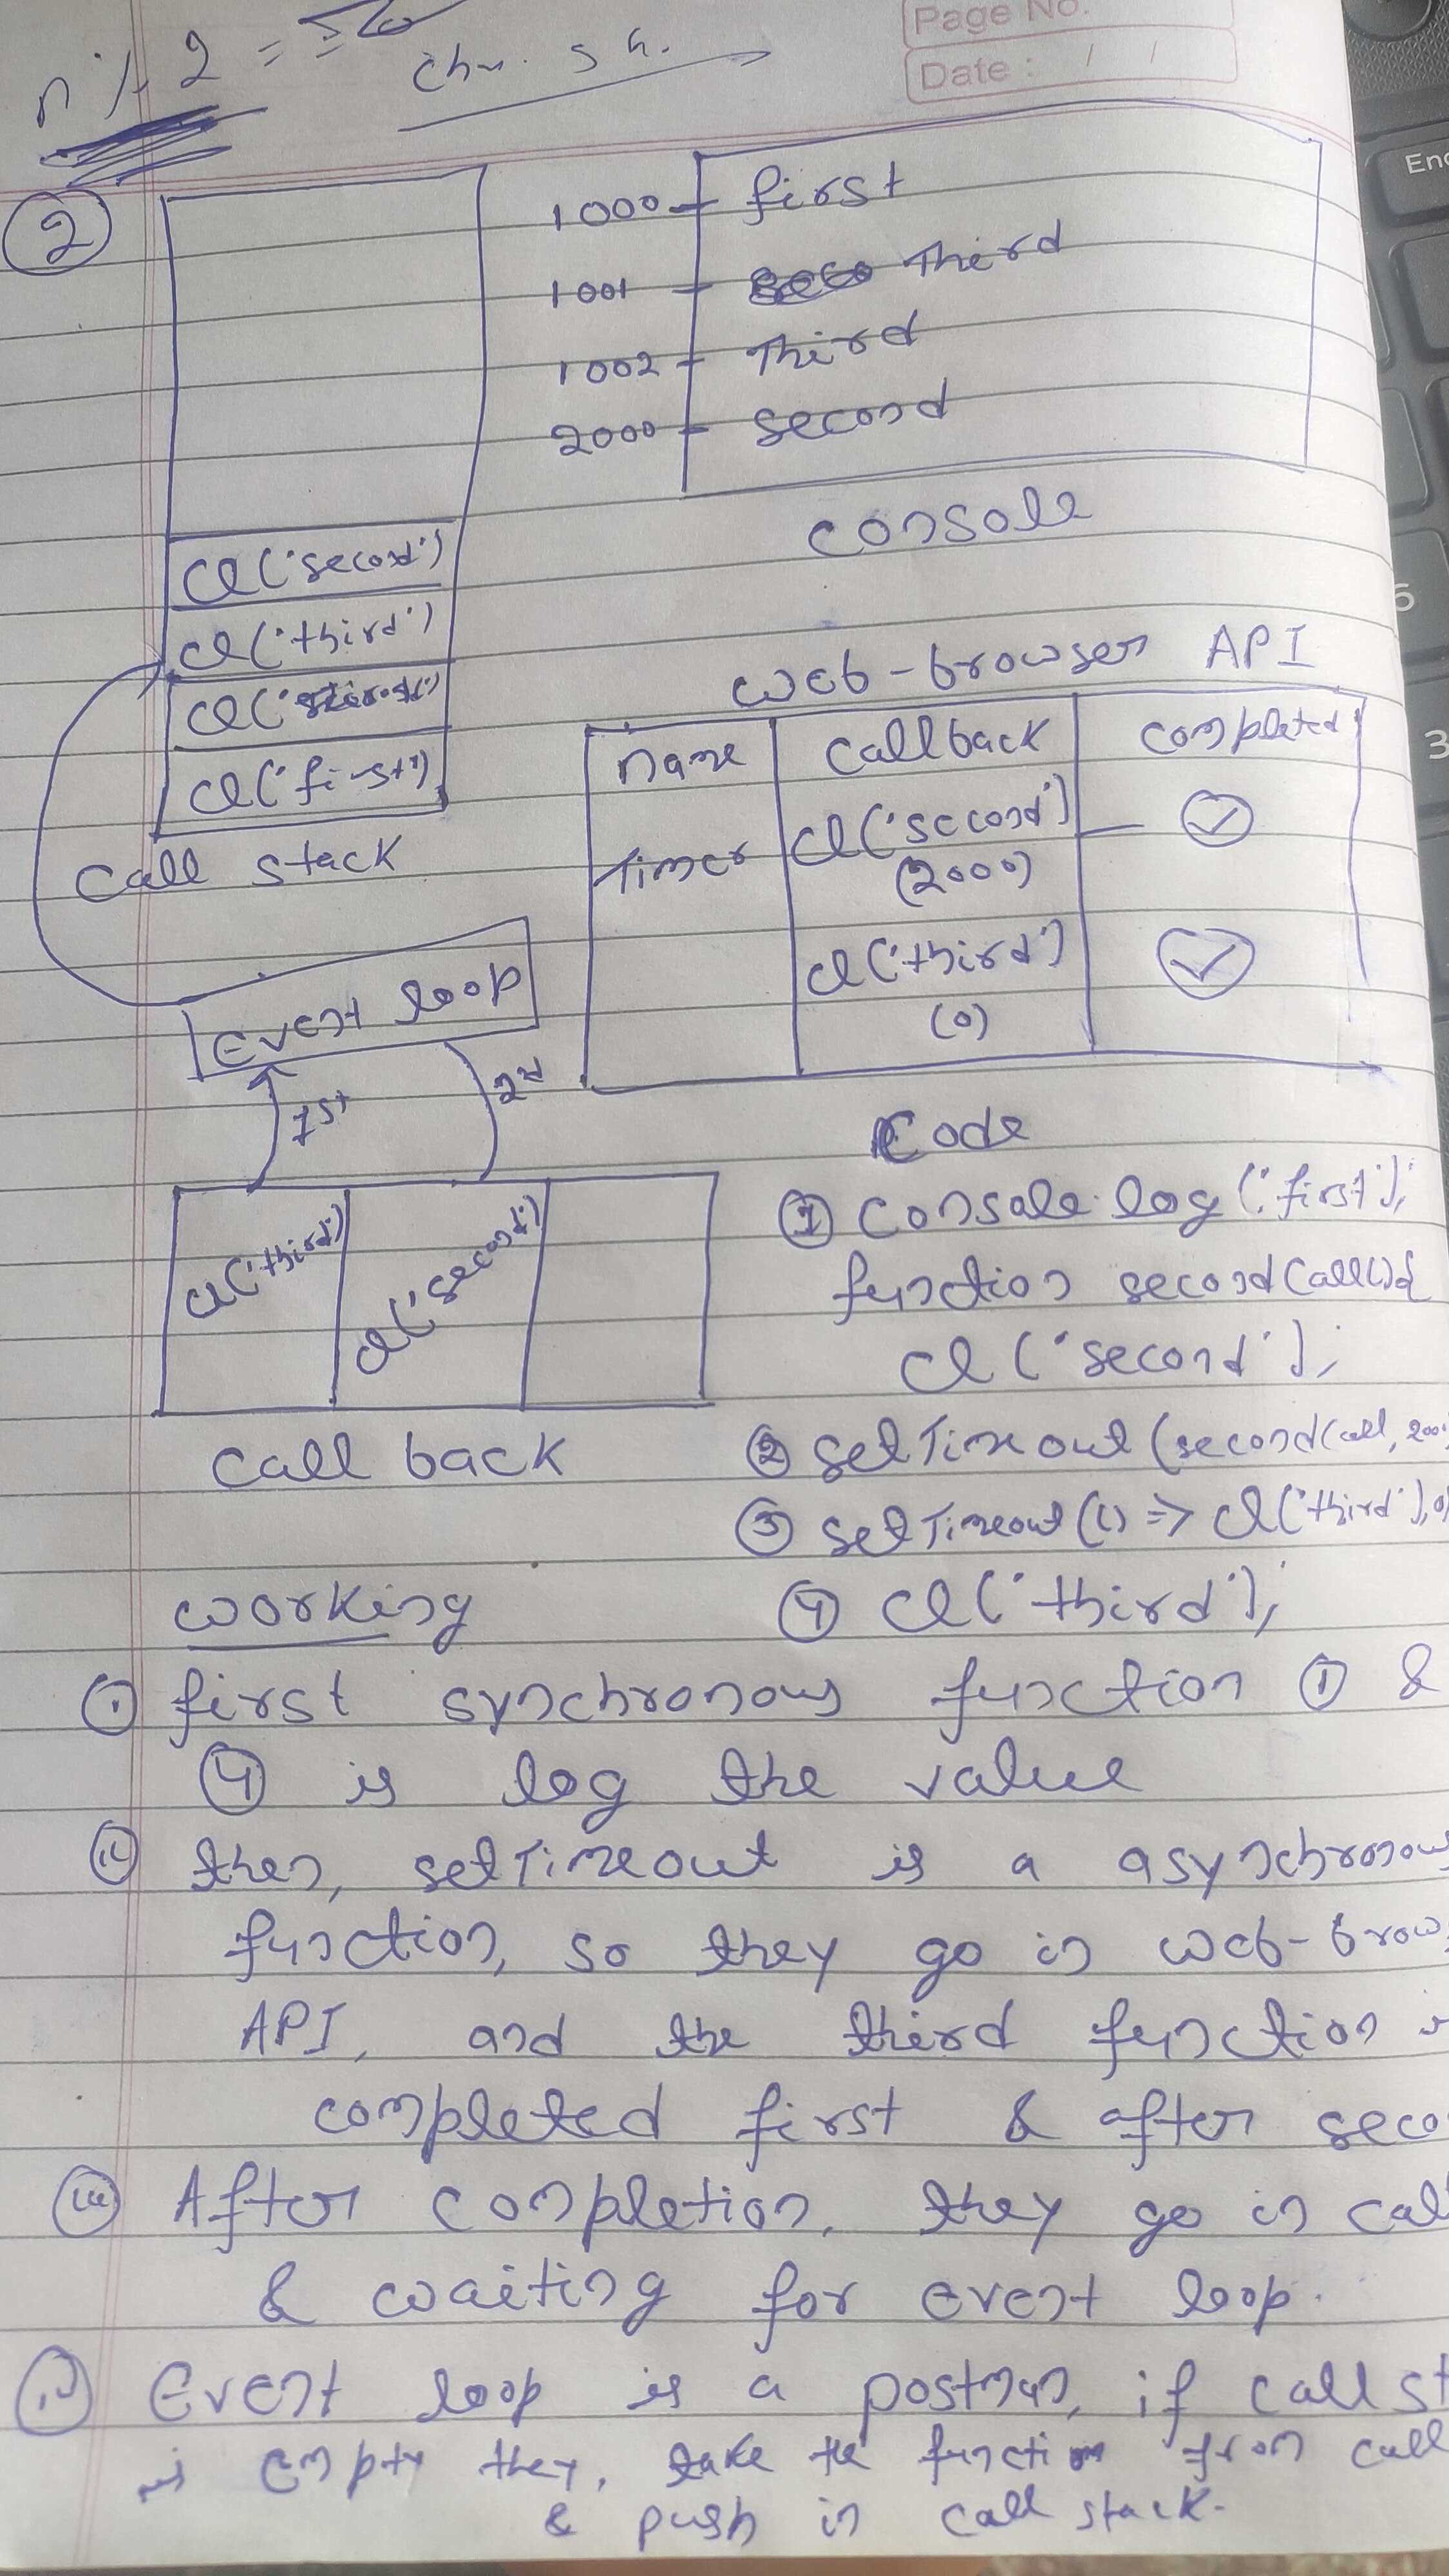 Page No.
Date : / /
n % 2 =
②
1000 - first
1001 - Third
1002 - Third
2000 - second
console
cl('second')
cl('third')
cl('first')
call stack
web-browser API
name callback completed
Timer cl('second') (2000)
cl('third') (0)
Event loop
1st 2nd
cl('third') cl('second')
call back
Code
① console.log('first');
function secondCall(){
cl('second');
② setTimeout(secondCall, 200
③ setTimeout(() => cl('third'), 0)
④ cl('third');
working
① first synchronous function ① &
④ is log the value
② then, setTimeout is a asynchronou
function, so they go in web-brow
API, and the third function i
completed first & after seco
③ After completion, they go in cal
& waiting for event loop.
④ Event loop is a postman, if call st
is empty they, take the function from call
& push in call stack.
End
6
3